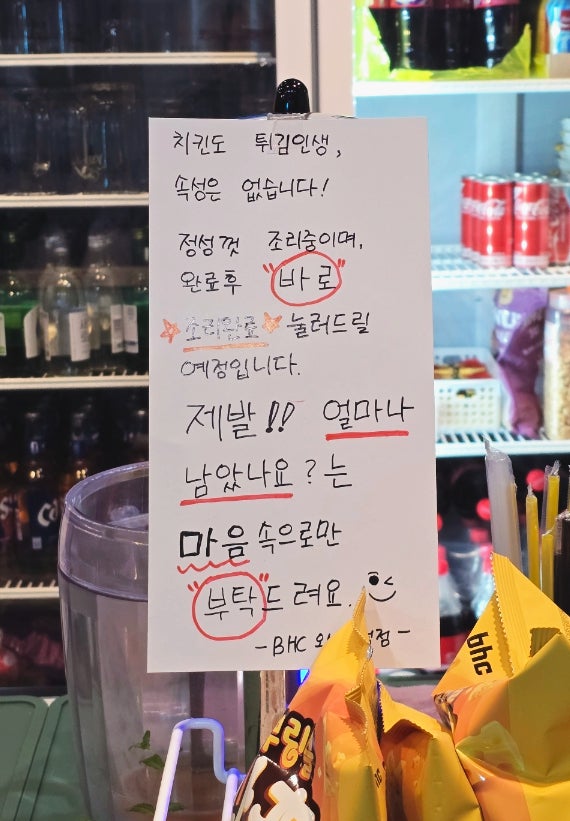 치킨도 튀김인생,
속성은 없습니다!
정성껏 조리중이며,
완료후 "바로"
☆조리완료☆ 눌러드릴
예정입니다.
제발!! 얼마나
남았나요?는
마음속으로만
"부탁"드려요.
-BHC
bhc
bhc
bhc
Coca-Cola